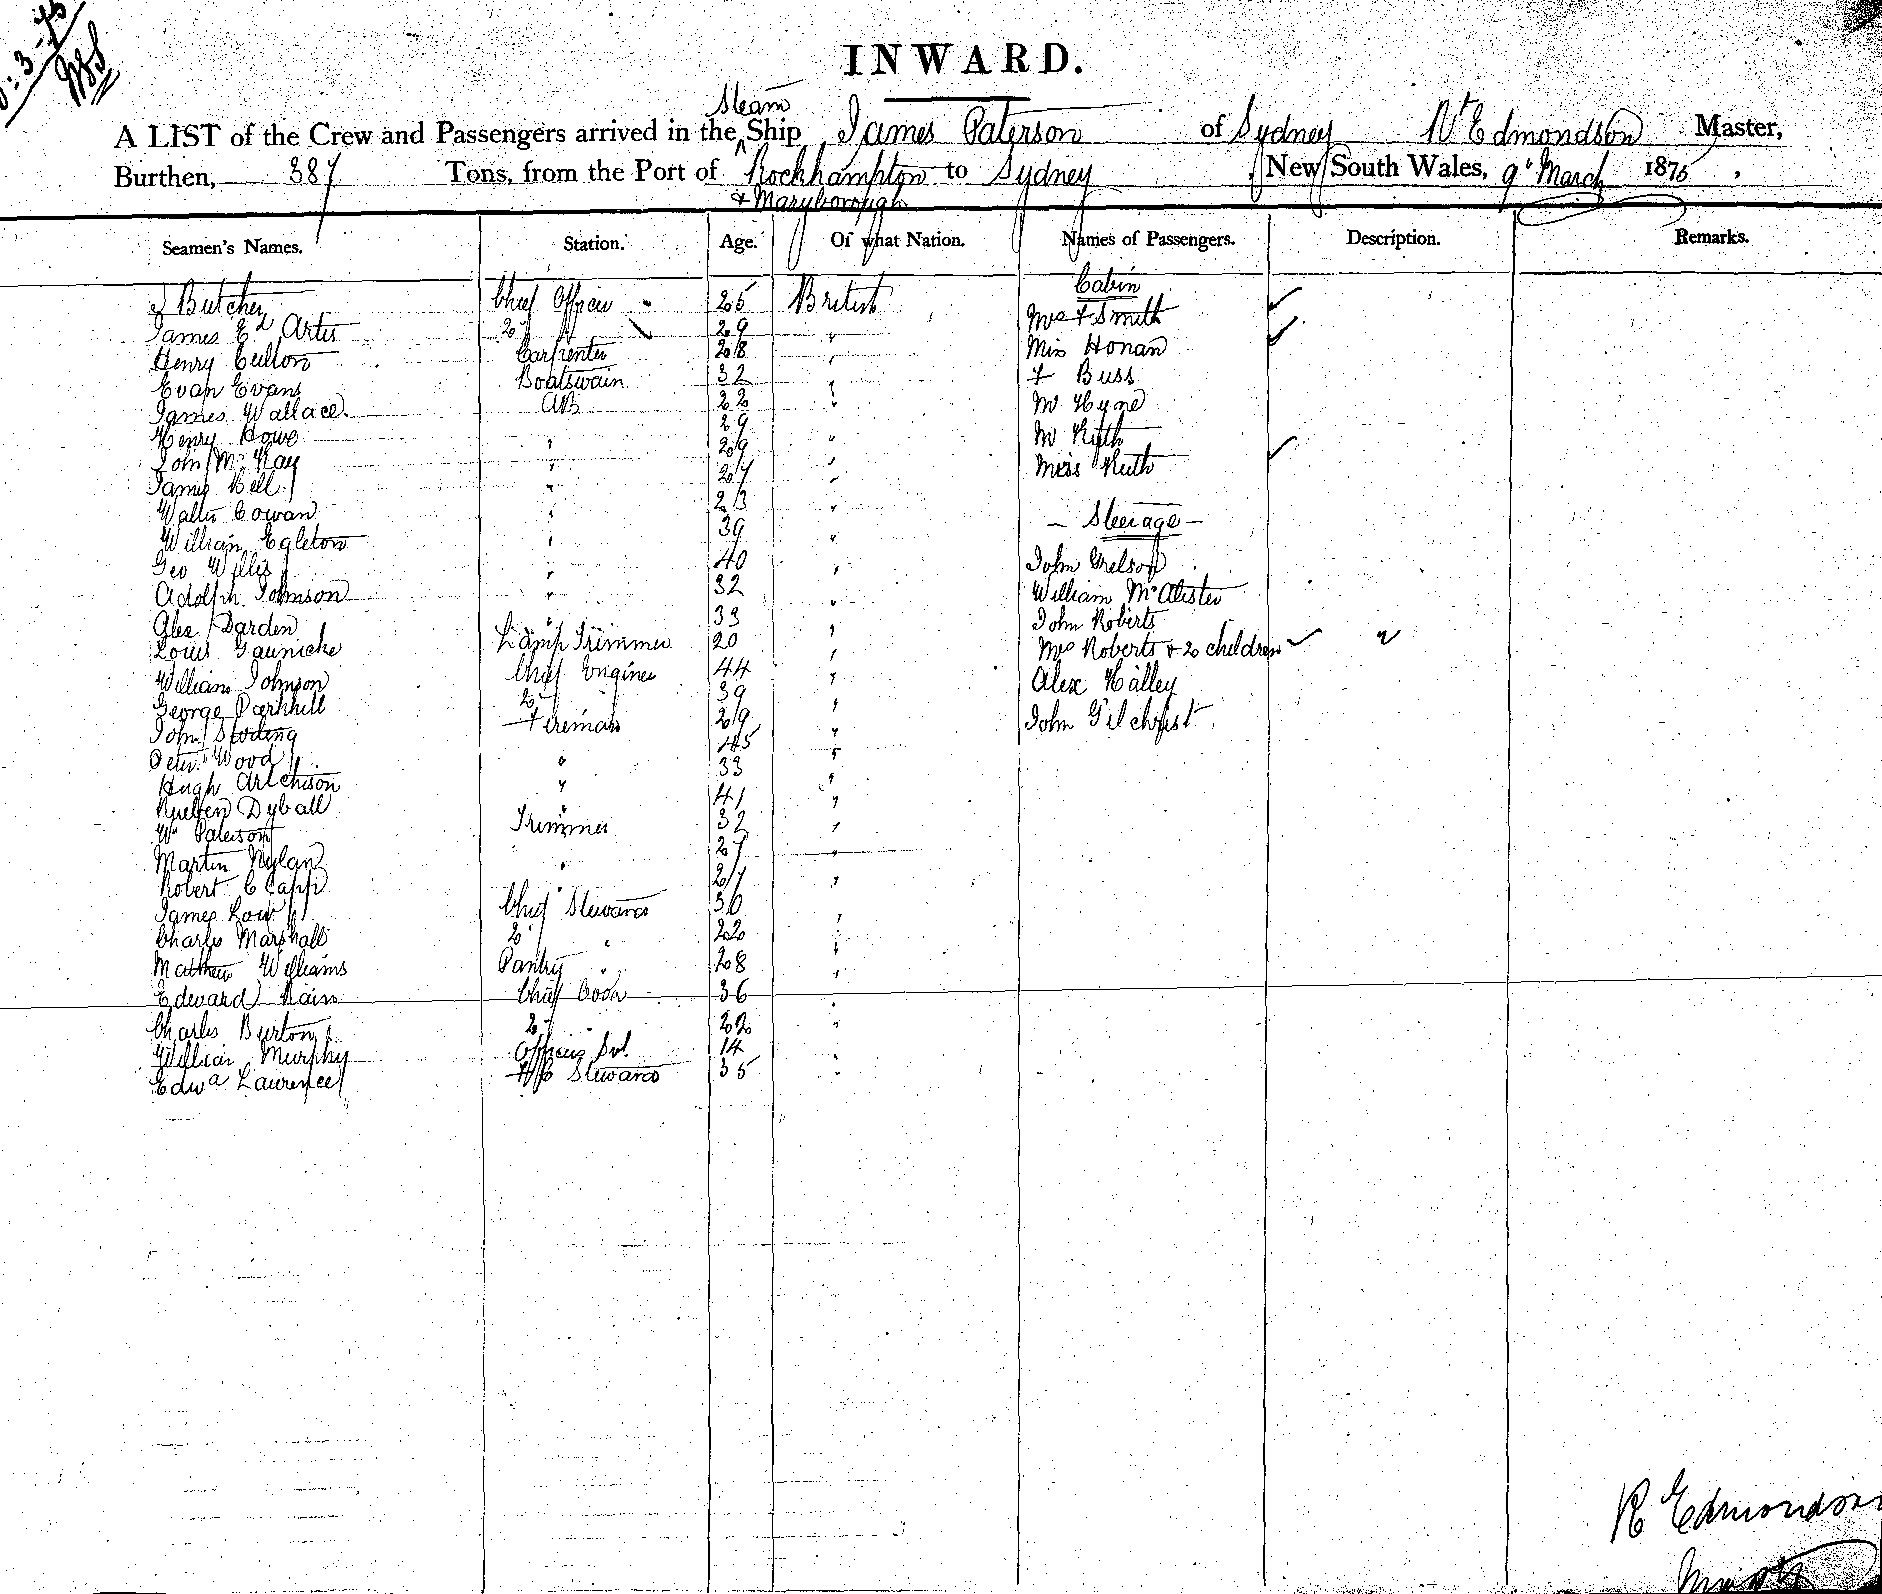 INWARD.
A LIST of the Crew and Passengers arrived in the Steam Ship James Paterson of Sydney Rt Edmondson Master,
Burthen, 387 Tons, from the Port of Rockhampton & Maryborough to Sydney New South Wales, 9 March 1875,
Seamen's Names. Station. Age. Of what Nation. Names of Passengers. Description. Remarks.
J Butcher Chief Officer 25 British
James Ed Artis 2 " 29 "
Henry Cullow Carpenter 28 "
Evan Evans Boatswain 32 "
James Wallace AB 22 "
Henry Howe " 29 "
John McKay " 29 "
James Bell " 27 "
Walter Cowan " 23 "
William Egleton " 39 "
Geo Willis " 40 "
Adolph Johnson " 32 "
Alex Darden " 33 "
Louis Lamp Trimmer 20 "
William Johnson Chief Engineer 44 "
George Parkhill 2 39 "
John Fireman 29 "
Peter Wood " 45 "
Hugh Artchison " 33 "
Reuben Dyball " 41 "
Wm Paterson Trimmer 32 "
Martin Nylan " 27 "
Robert Clapp " 21 "
James Low Chief Steward 30 "
Charles Marshall 2 " 22 "
Mathew Williams Pantry " 28 "
Edward Rain Chief Cook 36 "
Charles Burton 2 " 22 "
William Murphy Officers Svt 14 "
Edwd Laurence Steward 35 "
Cabin
Mrs F Smith
Miss Honan
F Buss
Mr Hyne
Mr Ruth
Miss Ruth
- Steerage -
John Grelson
William McAlister
John Roberts
Mrs Roberts & 2 children
Alex Halley
John Gilchrist
R Edmondson
Master